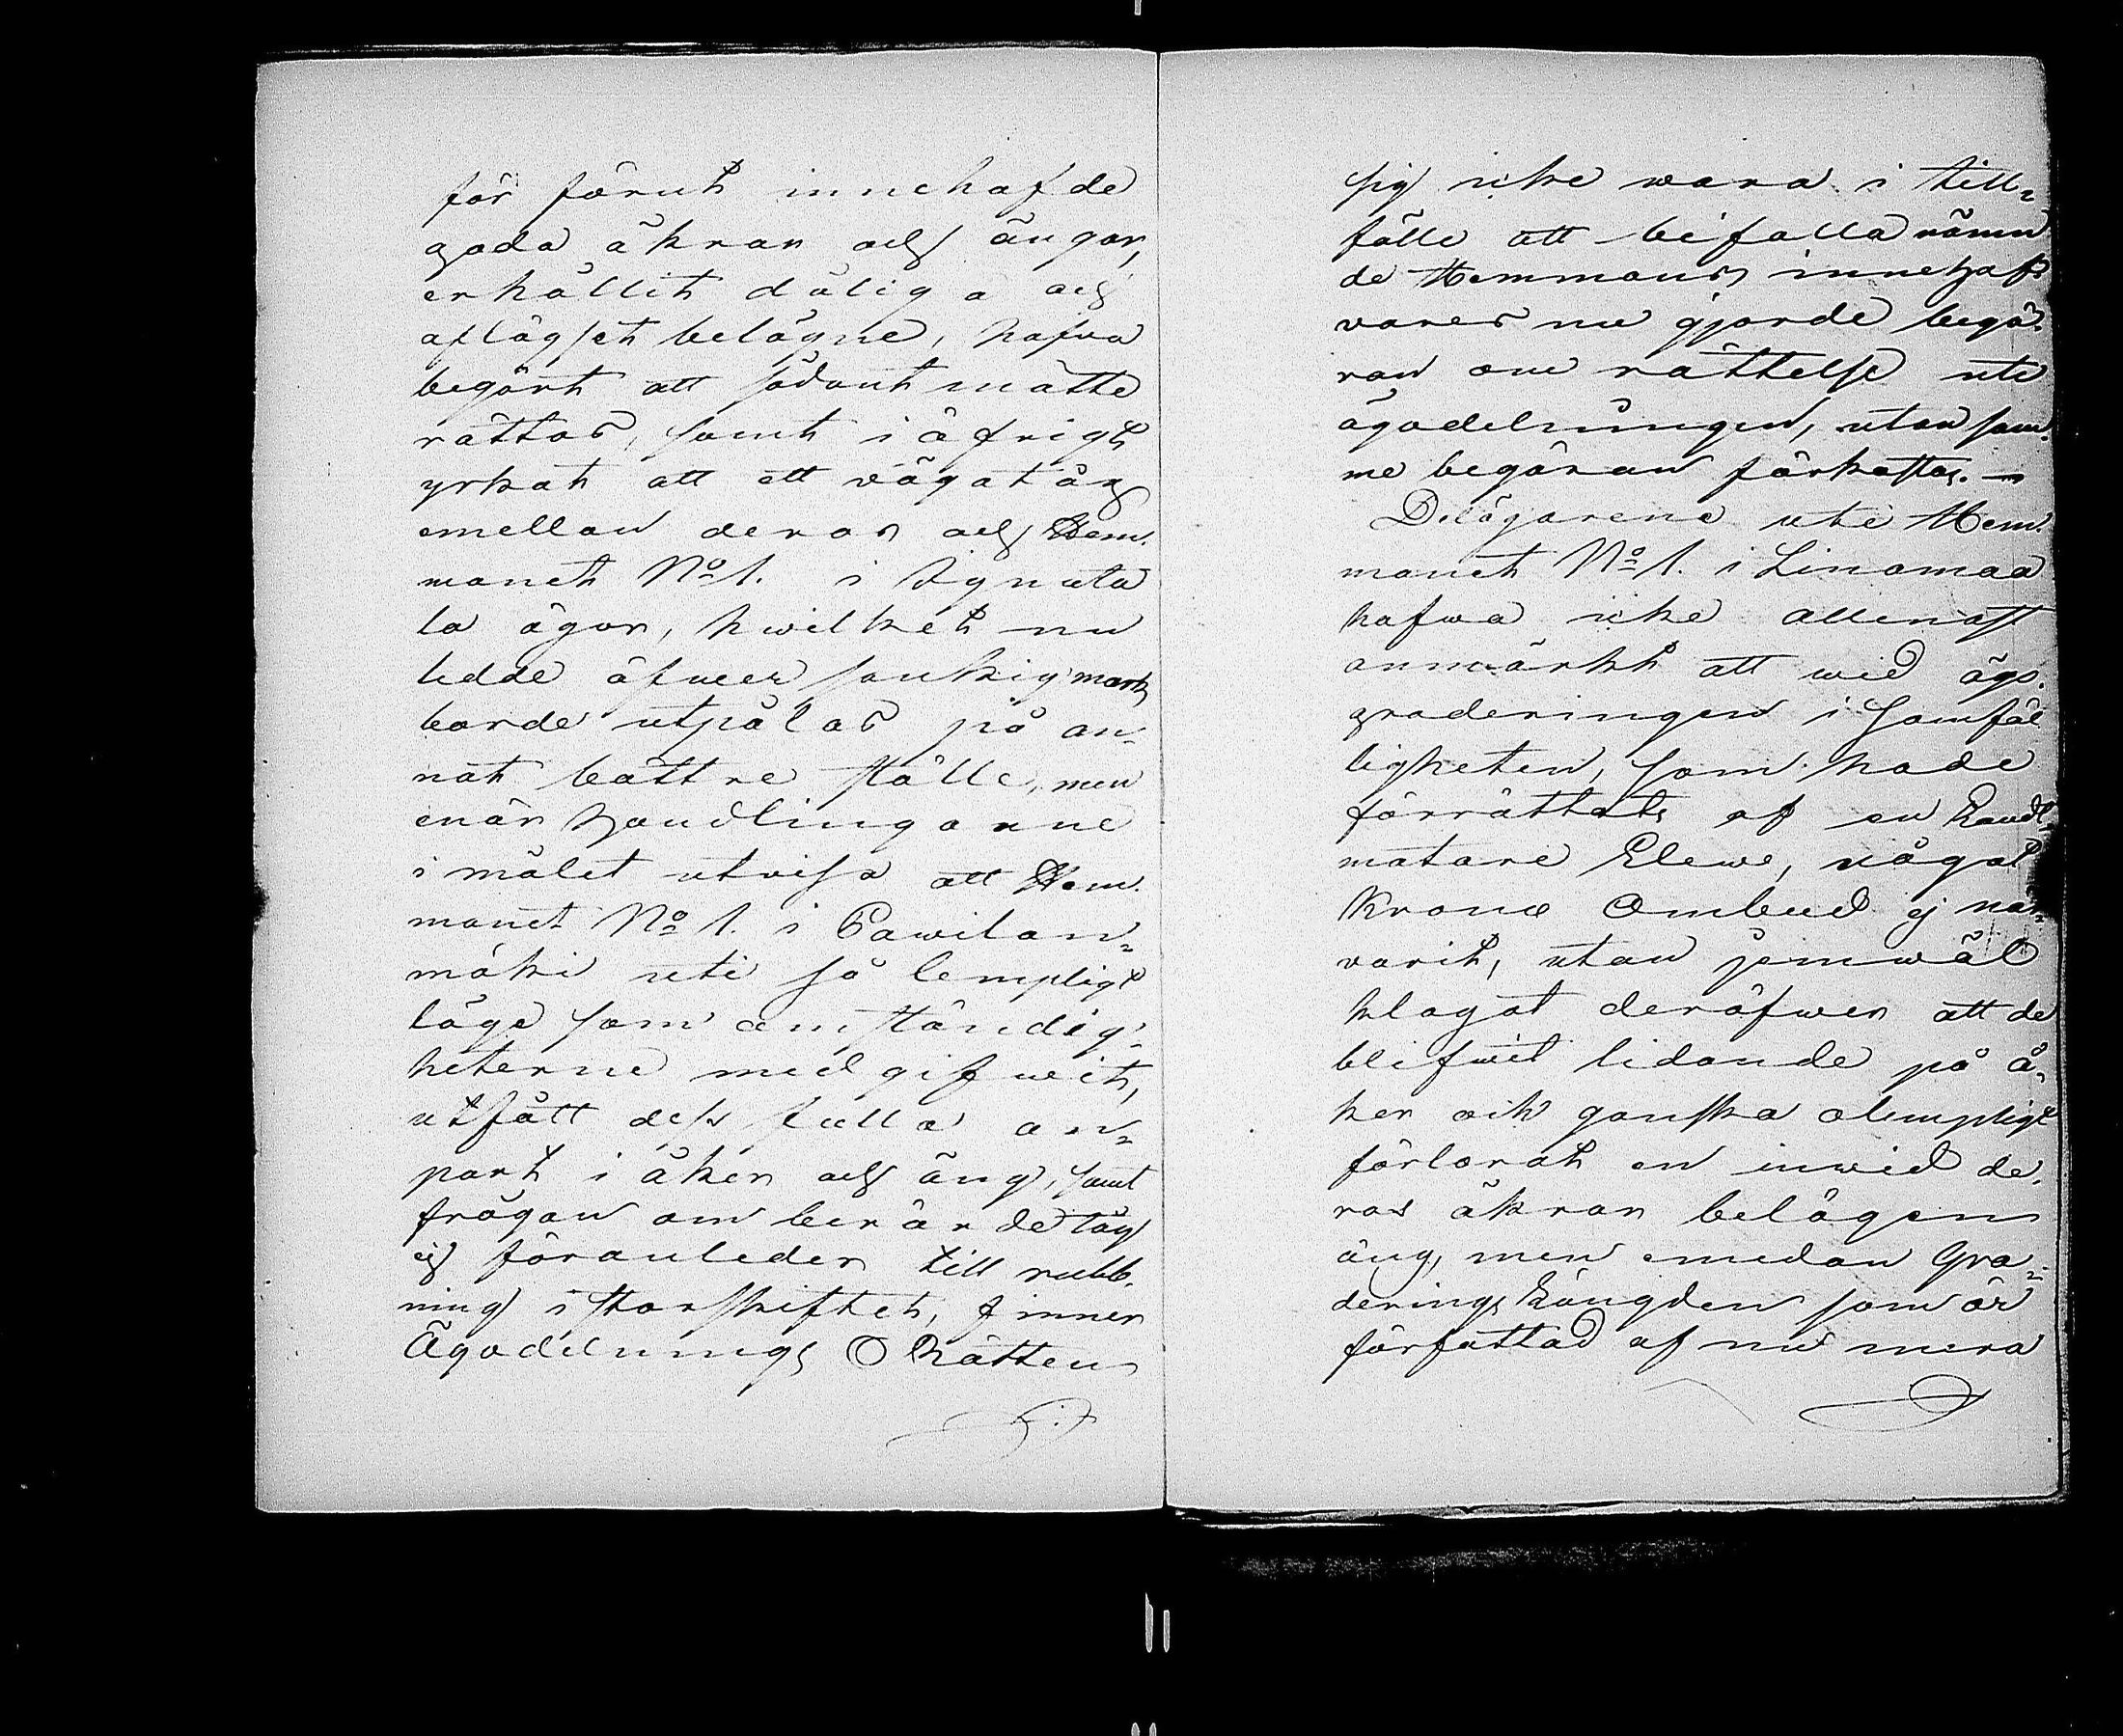 för förut innehafde
goda åkrar och ängar,
erhållit dåliga och
aflägset belägne, hafva
begärt att sådant måtte
rättas, samt i öfrigt
yrkat att ett vägatåg
emellan deras och Hem-
manet No 1. i Ignata
la ägor, hwilket nu
ledde öfwer sankig mark,
borde utpålas på an-
nat bättre ställe, men
enär Handlingarne
i målet utvisa att Hem-
manet No 1. i Pawilan-
mäki uti så lempligt
läge som omständig-
heterne medgifwit,
utfått dess fulla an-
part i åker och äng, samt
frågan om berörde tåg
ej föranleder till rubb-
ning i storskiftet, finner
Ägodelnings Rätten
sig icke wara i till-
fälle att bifalla nämn
de Hemmans innehaf-
vares nu gjorde begä-
ran om rättelse uti
ägodelningen, utan sam-
me begäran förkastas. –
Delägarene uti Hem-
manet No 1. i Linamaa
hafwa icke allenast
anmärkt att wid ägo-
graderingen i Samfäl
ligheten, som hade
förrättats af en Landt-
mätare Elewe, något
Krono Ombud ej när-
varit, utan jemwäl
klagat deröfwer att de
blifwit lidande på å-
ker och ganska olempligt
förlorat en inwid de-
ras åkrar belägen
äng, men emedan Gra-
derings Längden som är
författad af nu mera